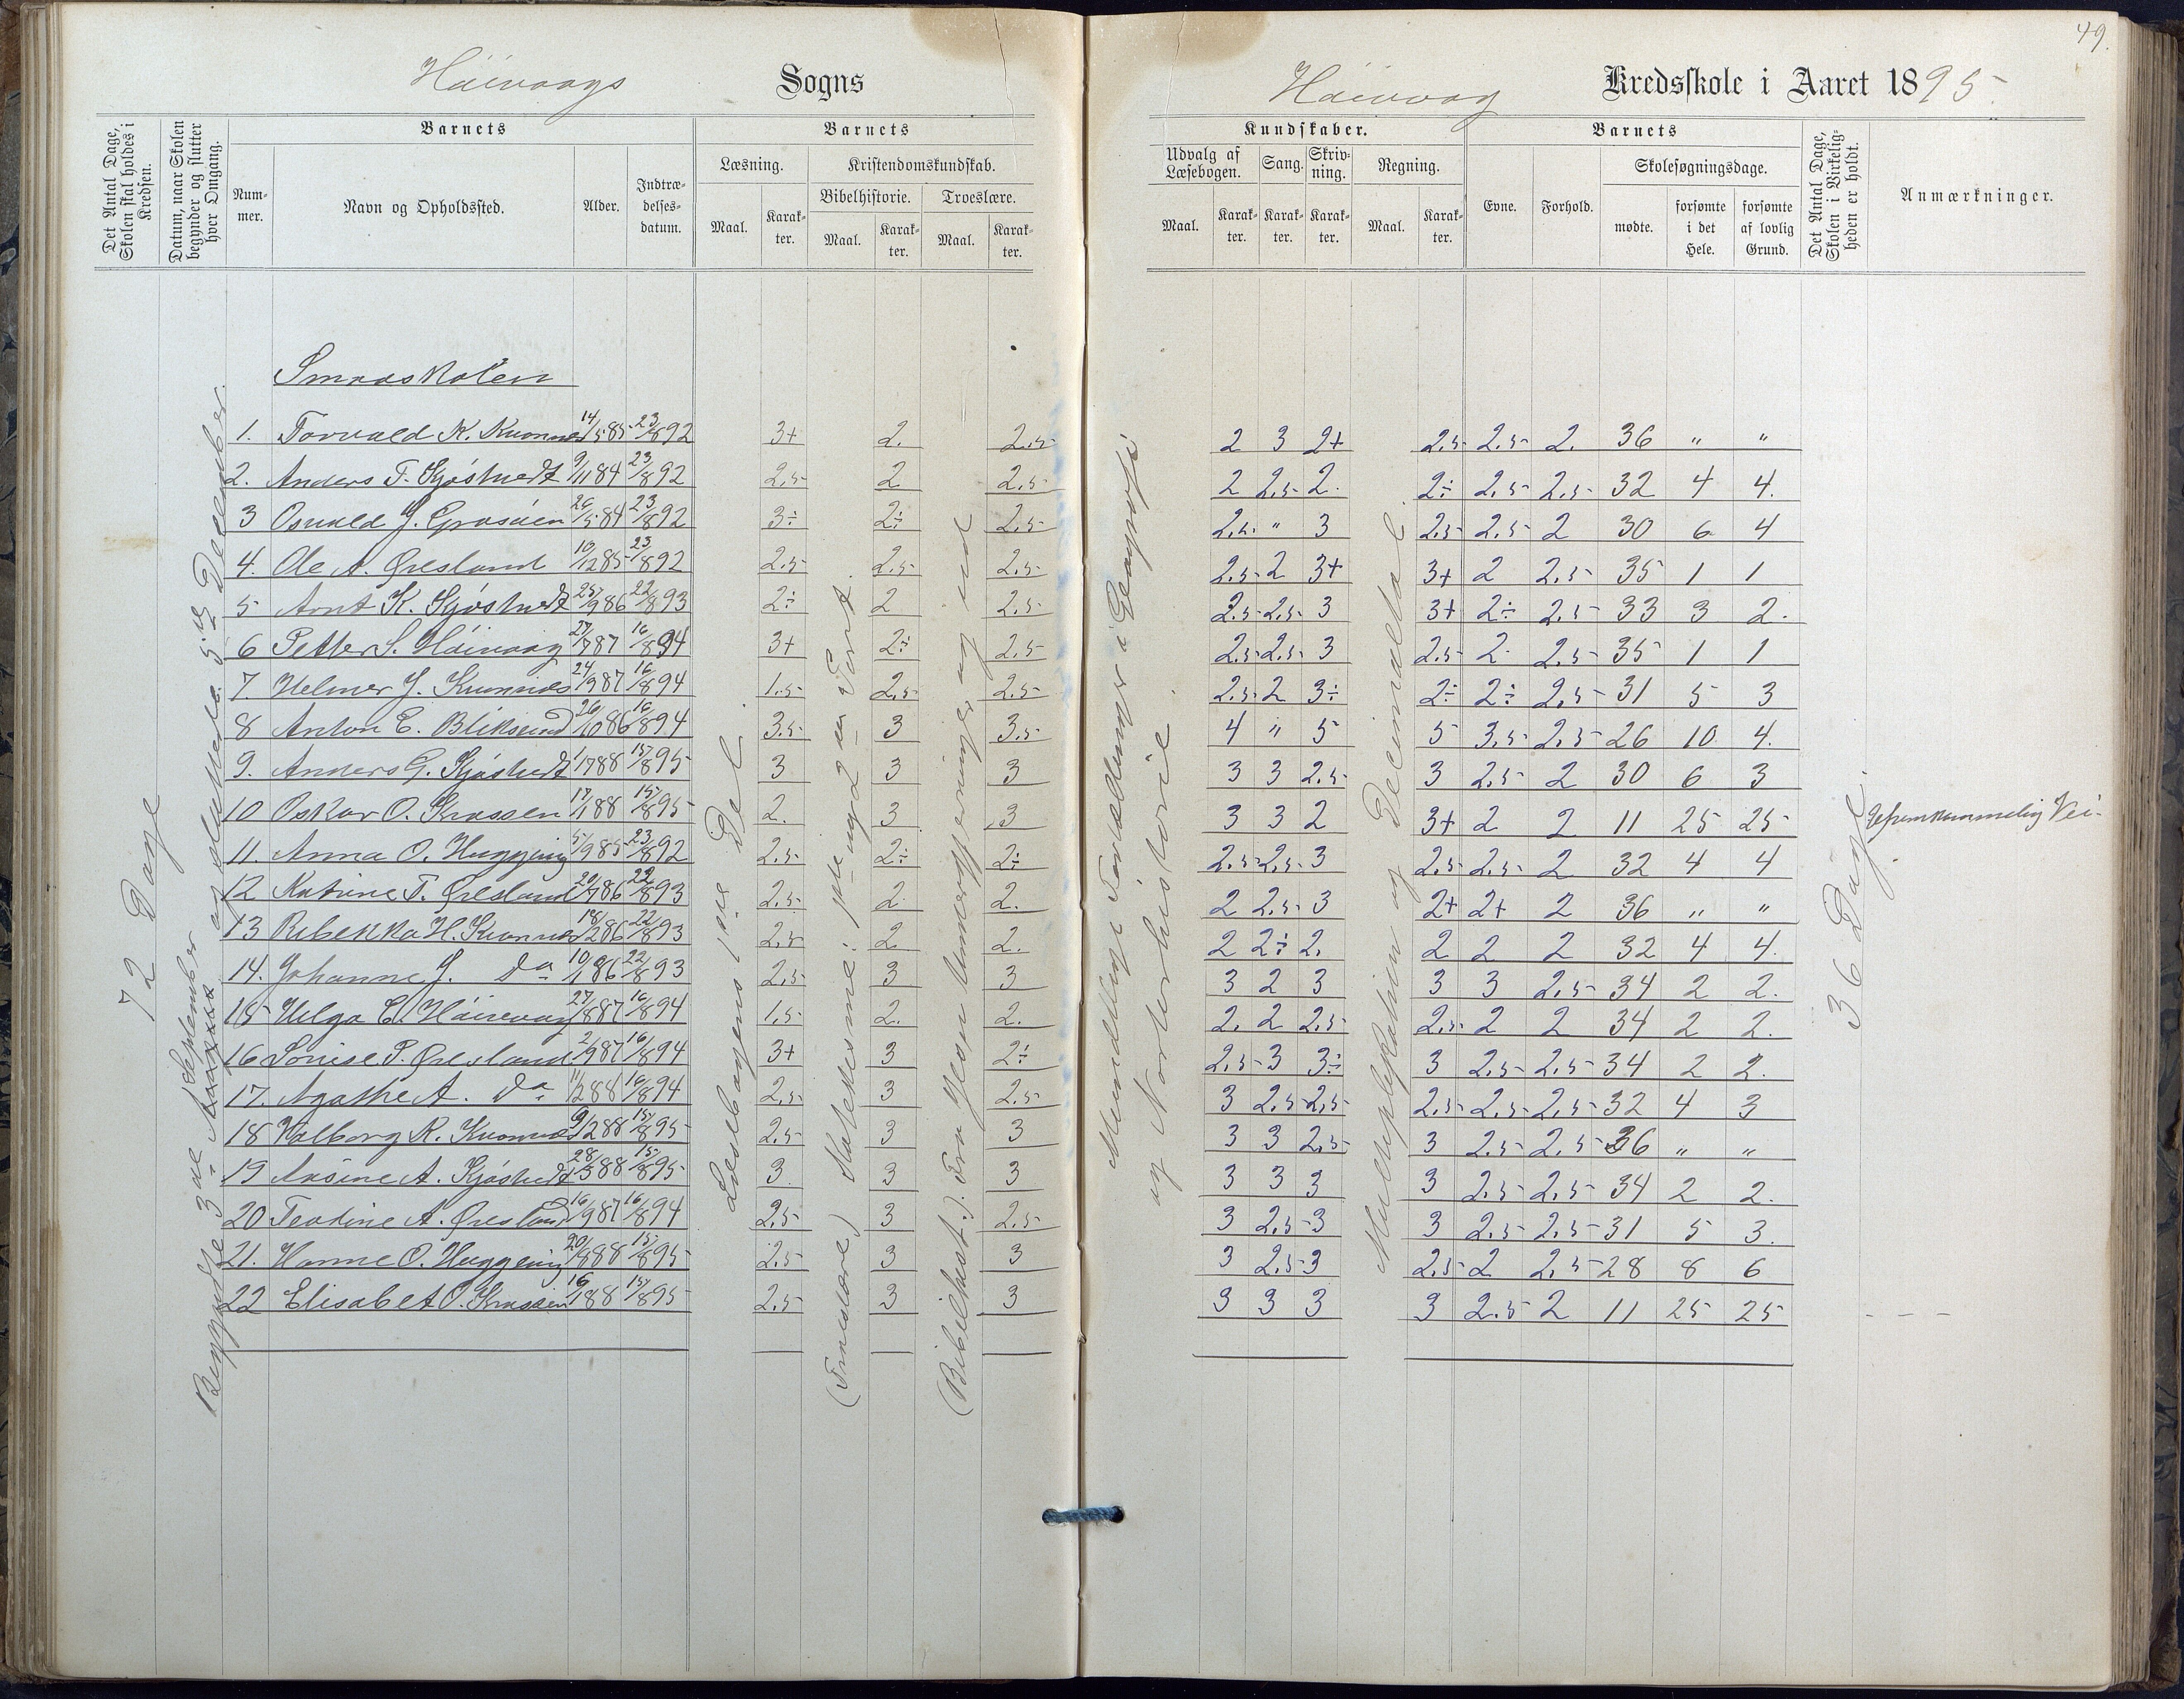 49.
Höivaags Sogns
Höivaag Kredsskole i Aaret 1895.
Det Antal Dage, Skolen skal holdes i Kredsen.
Datum, naar Skolen begynder og slutter hver Omgang.
Barnets
Nummer.
Navn og Opholdssted.
Alder.
Indtrædelsesdatum.
Barnets
Læsning.
Maal.
Karakter.
Kristendomskundskab.
Bibelhistorie.
Maal.
Karakter.
Troeslære.
Maal.
Karakter.
Kundskaber.
Udvalg af Læsebogen.
Maal.
Karakter.
Sang.
Karakter.
Skrivning.
Karakter.
Regning.
Maal.
Karakter.
Barnets
Evne.
Forhold.
Skolesøgningsdage.
mødte.
forsømte i det Hele.
forsømte af lovlig Grund.
Det Antal Dage, Skolen i Virkeligheden er holdt.
Anmærkninger.
72 Dage
Begyndte 3die September og sluttede 5te December.
Læsebogens 1ste Del.
(Troeslære) Katekisme: 1ste og 2den Part.
(Bibelhist.). Fra Jesu
Mundtlig i Fortællinger i Geografi
og Norsk historie.
Multiplikation og Decimaltal.
36 Dage.
Smaaskolen
1. Torvald K. Kvannes 14/5 85 23/8 92 3+ 2. 2.5 2 3 2+ 2.5 2.5 2. 36 " "
2. Anders T. Kjöstvedt 9/11 84 23/8 92 2.5 2 2.5 2 2.5 2. 2÷ 2.5 2.5 32 4 4.
3 Osvald J. Grasåen 26/5 84 23/8 92 3÷ 2÷ 2.5 2.5 " 3 2.5 2.5 2 30 6 4
4. Ole A. Øresland 10/12 85 23/8 92 2.5 2.5 2.5 2.5 2 3+ 3+ 2 2.5 35 1 1
5 Arnt K. Kjöstvedt 25/9 86 22/8 93 2÷ 2 2.5 2.5 2.5 3 3+ 2÷ 2.5 33 3 2.
6 Petter S. Höivaag 27/7 87 16/8 94 3+ 2÷ 2.5 2.5 2.5 3 2.5 2 2.5 35 1 1
7. Helmer J. Kvannes 24/9 87 16/8 94 1.5 2.5 2.5 2.5 2 3÷ 2÷ 2÷ 2.5 31 5 3
8 Anton E. Bliksund 26/10 86 16/8 94 3.5 3 3.5 4 " 5 5 3.5 2.5 26 10 4.
9. Anders G. Kjöstvedt 1/7 88 15/8 95 3 3 3 3 3 2.5 3 2.5 2 30 6 3
10 Oskar O. 17/1 88 15/8 95 2. 3 3 3 3 2 3+ 2 2 11 25 25 Ufremkommelig Vei.
11. Anna O. Huggeng 5/9 85 23/8 92 2.5 2÷ 2÷ 2.5 2.5 3 2.5 2.5 2 32 4 4
12 Katrine T. Øresland 20/7 86 22/8 93 2.5 2 2. 2 2.5 3 2+ 2+ 2 36 " "
13 Rebekka H. Kvannes 18/2 86 22/8 93 2.5 2 2. 2 2÷ 2. 2 2 2 32 4 4.
14. Johanne J. Do 10/1 86 22/8 93 2.5 3 3 3 2 3 3 3 2.5 34 2 2.
15 Helga E. Höivaag 27/8 87 16/8 94 1.5 2. 2. 2. 2 2.5 2.5 2 2 34 2 2.
16 Lovise P. Øresland 2/9 87 16/8 94 3+ 3 2÷ 2.5 3 3÷ 3 2.5 2.5 34 2 2.
17. Agathe A. Do 11/2 88 16/8 94 2.5 3 2.5 3 2.5 2.5 2.5 2.5 2.5 32 4 3
18 Valborg R. Kvannes 9/2 88 15/8 95 2.5 3 3 3 3 2.5 3 2.5 2.5 36 " "
19 Aasine A. Kjöstvedt 28/3 88 15/8 95 3. 3 3 3 3 3 3 2.5 2.5 34 2 2.
20 Teodine A. Øresland 16/9 87 16/8 94 2.5 3 2.5 3 2.5 3 3 2.5 2.5 31 5 3.
21. Hanne O. Huggeng 20/8 88 15/8 95 2.5 3 3 3 2.5 3 2.5 2 2.5 28 8 6
22 Elisabet O. 16/1 88 15/8 95 2.5 3 3 3 3 3 3 2.5 2 11 25 25 - - -